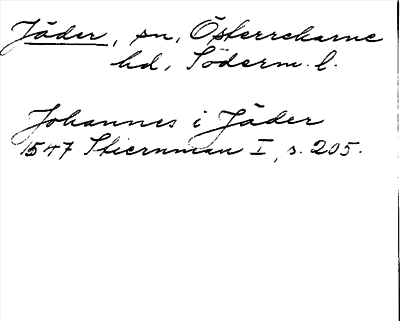 Jäder, sn, Österrekarne
hd, Söderm. l.
Johannes i Jäder
1547 Stiernman I, s. 205.